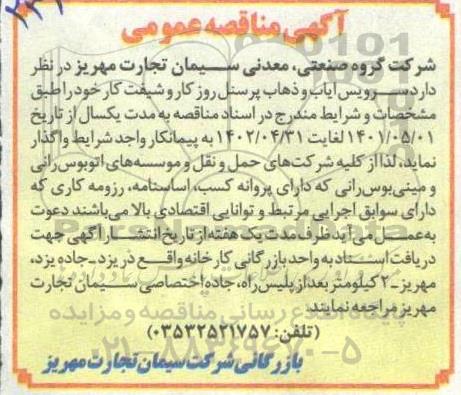 آگهی مناقصه عمومی
شرکت گروه صنعتی، معدنی سیمان تجارت مهریز در نظر
دارد سرویس ایاب و ذهاب پرسنل روز کار و شیفت کار خود را طبق
مشخصات و شرایط مندرج در اسناد مناقصه به مدت یکسال از تاریخ
۱۴۰۱/۰۵/۰۱ لغایت ۱۴۰۲/۰۴/۳۱ به پیمانکار واجد شرایط واگذار
نماید، لذا از کلیه شرکت‌های حمل و نقل و موسسه‌های اتوبوس‌رانی
و مینی‌بوس‌رانی که دارای پروانه کسب، اساسنامه، رزومه کاری که
دارای سوابق اجرایی مرتبط و توانایی اقتصادی بالا می‌باشند دعوت
به‌عمل می‌آید ظرف مدت یک هفته از تاریخ انتشار آگهی جهت
دریافت اسناد به واحد بازرگانی کارخانه واقع در یزد ـ جاده یزد،
مهریز ـ ۲ کیلومتر بعد از پلیس راه، جاده اختصاصی سیمان تجارت
مهریز مراجعه نمایند.
(تلفن: ۰۳۵۳۲۵۲۱۷۵۷)
بازرگانی شرکت سیمان تجارت مهریز